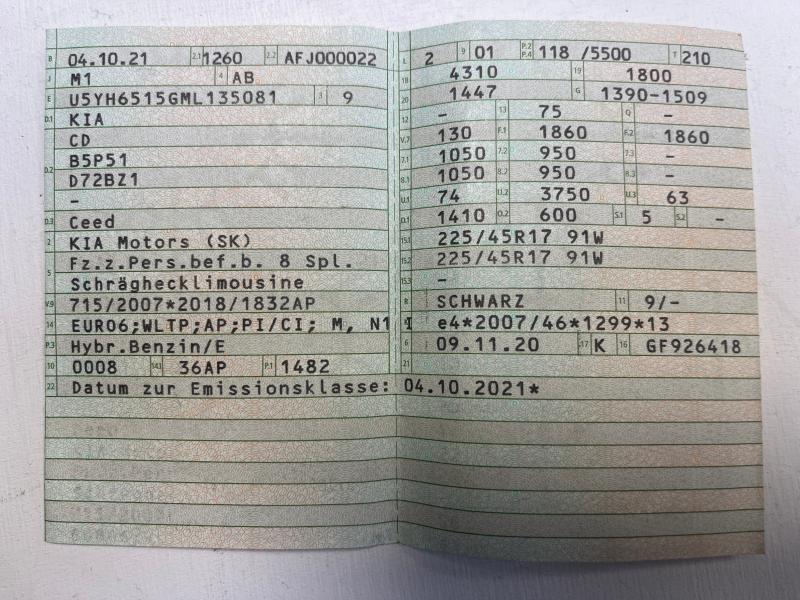 B 04.10.21 2.1 1260 2.2 AFJ000022
J M1 4 AB
E U5YH6515GML135081 3 9
D.1 KIA
CD
B5P51
D.2 D72BZ1
-
D.3 Ceed
2 KIA Motors (SK)
Fz.z.Pers.bef.b. 8 Spl.
5 Schräghecklimousine
V.9 715/2007*2018/1832AP
14 EURO6;WLTP;AP;PI/CI; M, N1 I
P.3 Hybr.Benzin/E
10 0008 14.1 36AP P.1 1482
22 Datum zur Emissionsklasse: 04.10.2021*
L 2 9 01 P.2 P.4 118 /5500 T 210
18 4310 19 1800
20 1447 G 1390-1509
- 13 75 Q -
V.7 130 F.1 1860 F.2 1860
7.1 1050 7.2 950 7.3 -
8.1 1050 8.2 950 8.3 -
U.1 74 U.2 3750 U.3 63
O.1 1410 O.2 600 S.1 5 S.2 -
15.1 225/45R17 91W
15.2 225/45R17 91W
15.3 -
R SCHWARZ 11 9/-
e4*2007/46*1299*13
6 09.11.20 17 K 16 GF926418
21